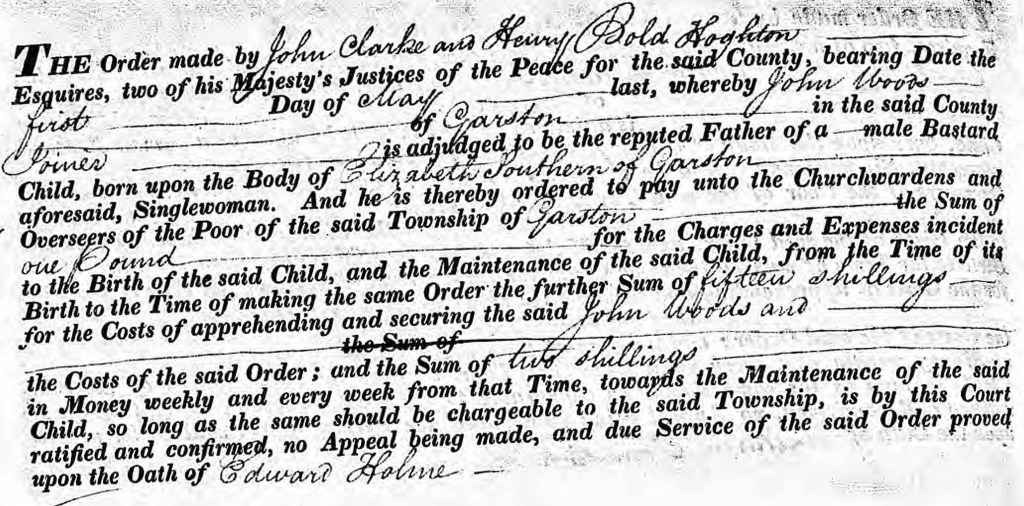 THE Order made by John Clarke and Henry Bold Hoghton
Esquires, two of his Majesty's Justices of the Peace for the said County, bearing Date the
first Day of May last, whereby John Woods
of Garston in the said County
Joiner is adjudged to be the reputed Father of a male Bastard
Child, born upon the Body of Elizabeth Southern of Garston
aforesaid, Singlewoman. And he is thereby ordered to pay unto the Churchwardens and
Overseers of the Poor of the said Township of Garston the Sum of
one Pound for the Charges and Expenses incident
to the Birth of the said Child, and the Maintenance of the said Child, from the Time of its
Birth to the Time of making the same Order the further Sum of fifteen shillings
for the Costs of apprehending and securing the said John Woods and
the Sum of
the Costs of the said Order; and the Sum of two shillings
in Money weekly and every week from that Time, towards the Maintenance of the said
Child, so long as the same should be chargeable to the said Township, is by this Court
ratified and confirmed, no Appeal being made, and due Service of the said Order proved
upon the Oath of Edward Holme